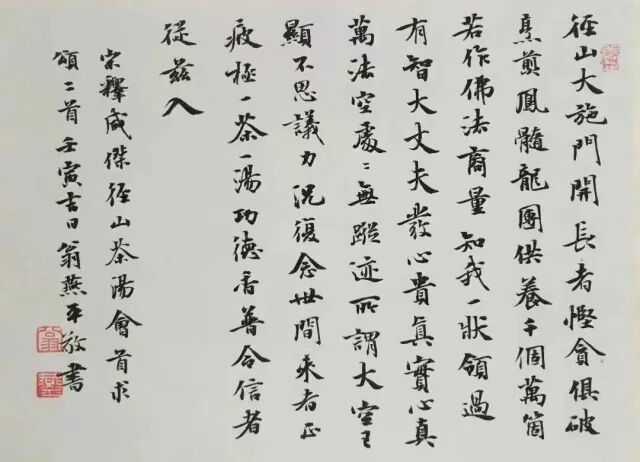 徑山大施門開長者慳貪俱破
烹煎鳳髓龍團供養千個萬箇
若作佛法商量知我一狀領過
有智大丈夫發心貴真實心真
萬法空處〻無蹤迹所謂大空王
顯不思議力況復念世間來者正
疲極一茶一湯功德香普令信者
從茲入
宗釋咸傑徑山茶湯會首求
頌二首壬寅吉日翁燕平敬書